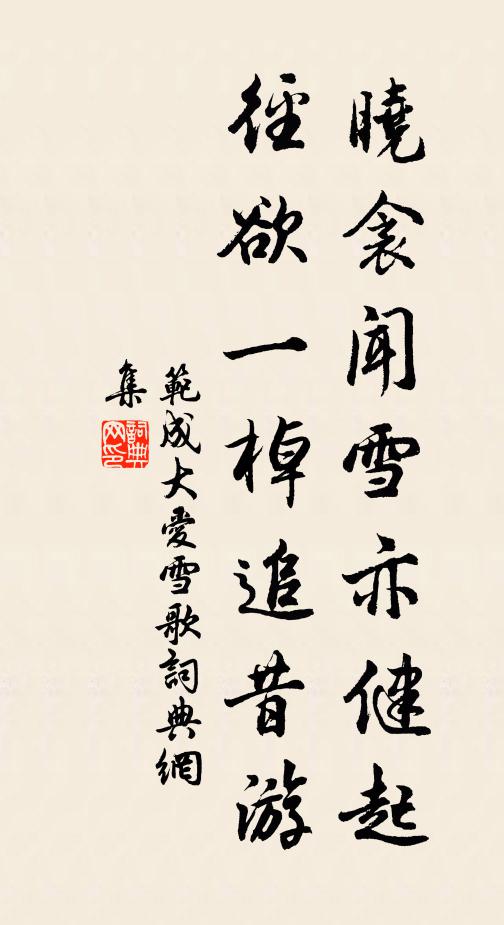 曉衾聞雪亦健起
徑欲一棹追昔游
範成大愛雪歌詞典網
集
詞典
网印